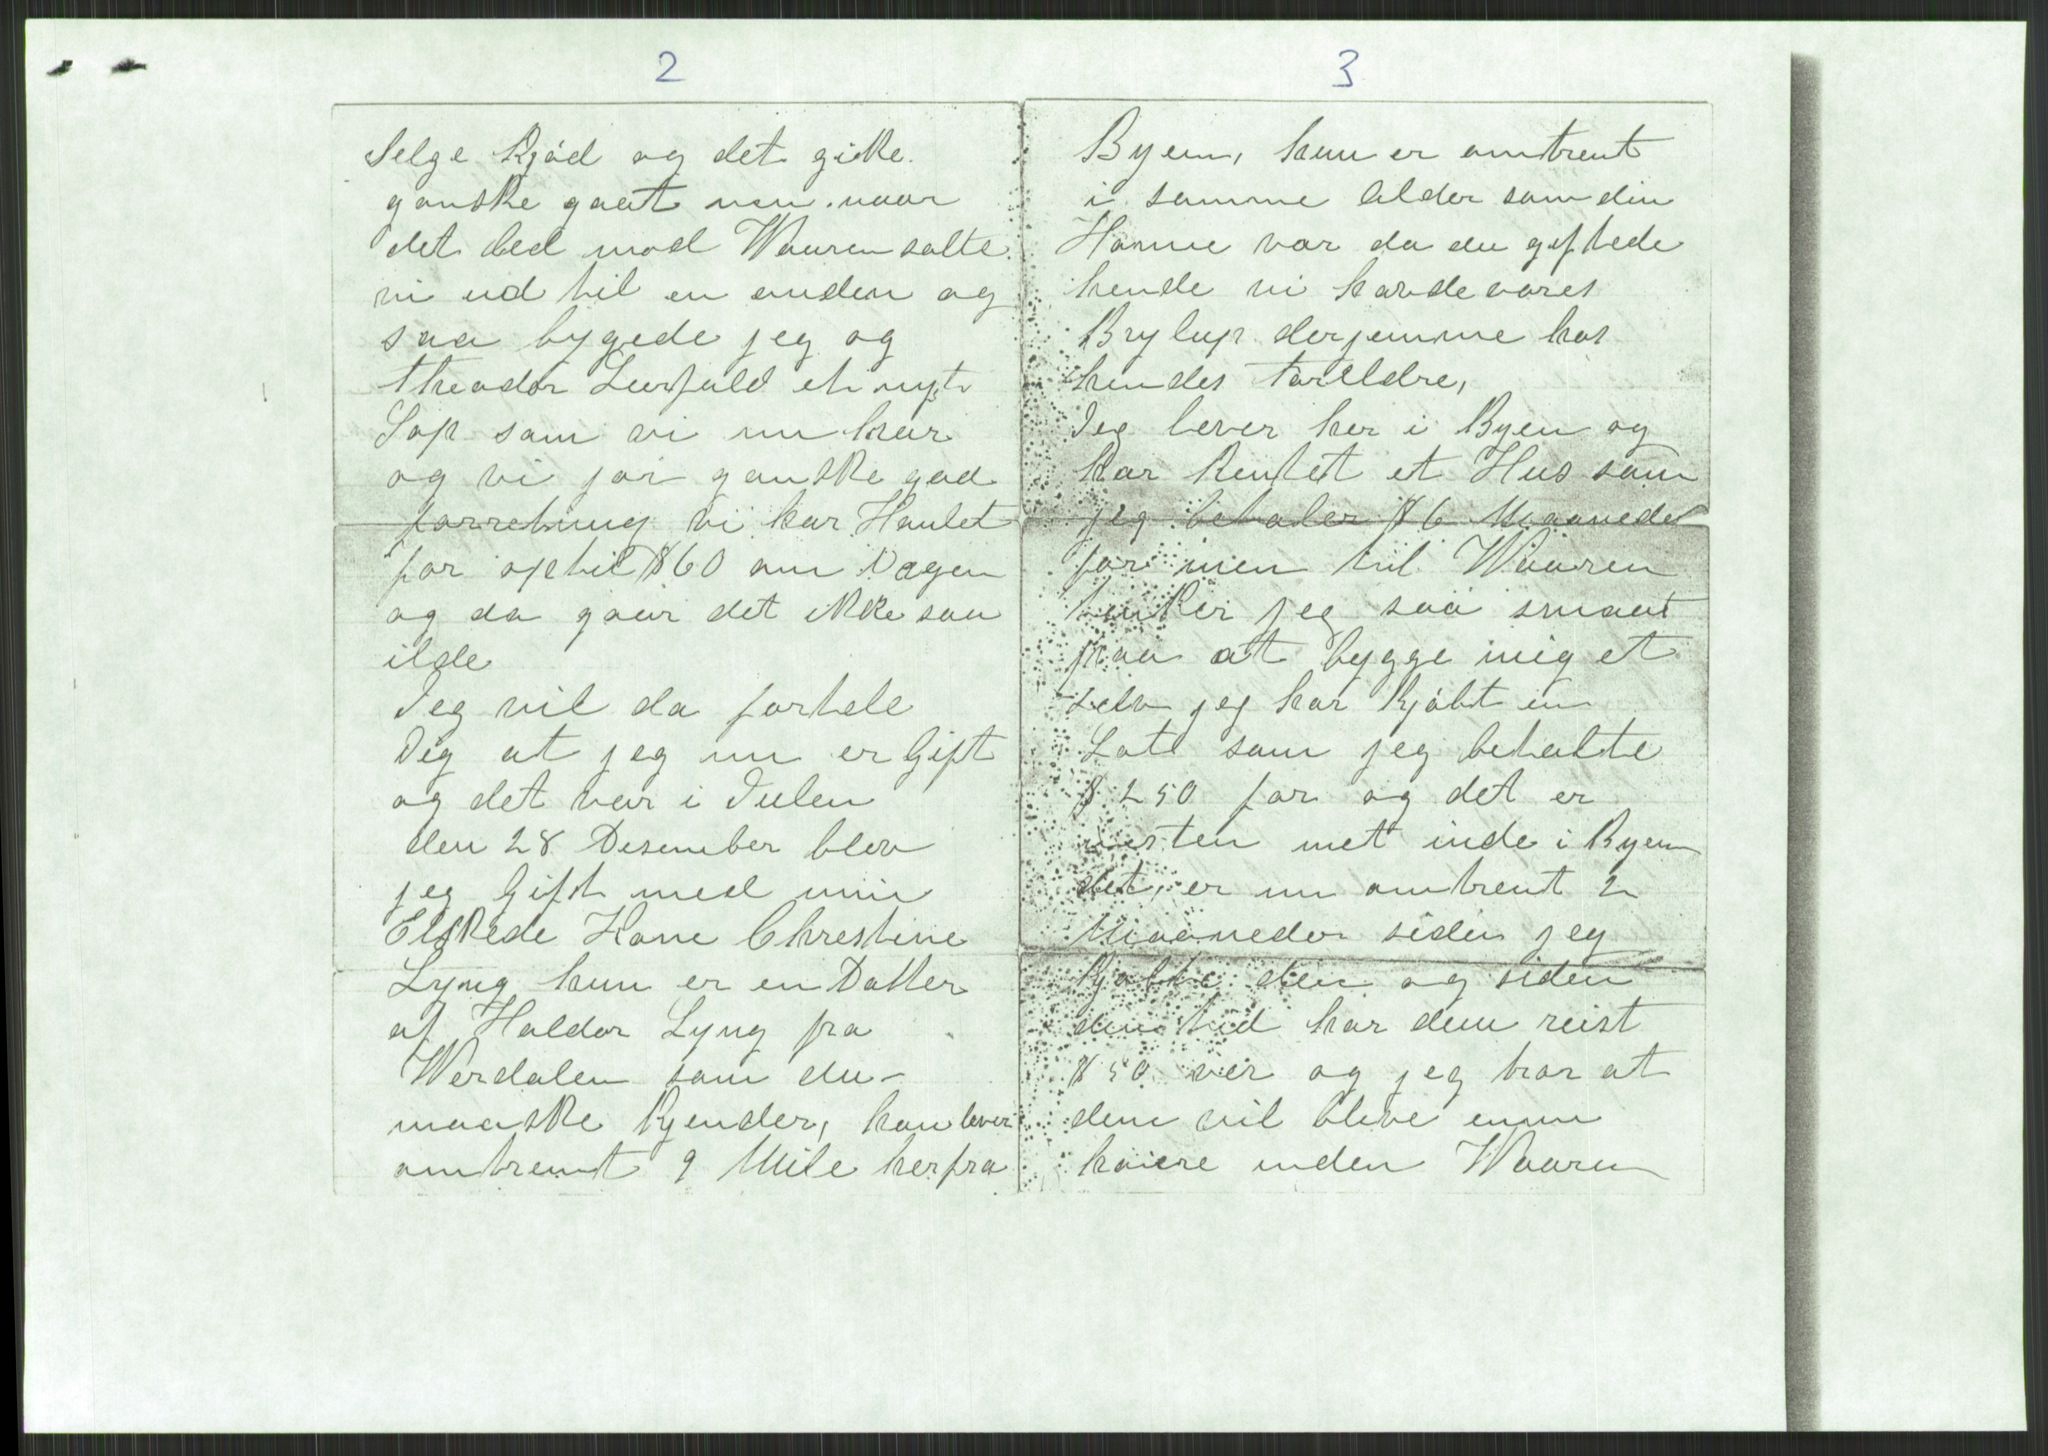 2
Selge Kjød og det gikke
ganske gaat men naar
det led mod Waaren solte
vi ud til en anden og
saa bygede jeg og
theodor et nyt
Sop som vi nu har
og vi jør ganske god
forretning vi har Hanlet
for optil $60 om Dagen
og da gaar det ikke saa
ilde
Jeg vil da fortele
Dig at jeg nu er Gift
og det var i Julen
den 28 Desember blev
jeg Gift med min
Elskede Kone Christine
Lyng hun er en Datter
af Haldor Lyng fra
Werdalen som du
maaske Kjender, han lever
omtrent 9 Mile herfra
3
Byen, hun er omtrent
i samme Alder som din
Hanne var da du giftede
hende vi havde vores
Brylup derjemme hos
hendes foreldre,
Jeg lever her i Byen og
har Rentet et Hus som
jeg betaler $6 Maanedel
for men til Waaren
tenker jeg saa smaat
paa at bygge mig et
selv jeg har Kjøbt en
Lot som jeg betalte
$250 for og det er
nesten met inde i Byen
det er nu omtrent 2
Maaneder siden jeg
Kjøbte den og siden
den tid har dem reist
$50 ver og jeg tror at
dem vil bleve ennu
høiere inden Waaren